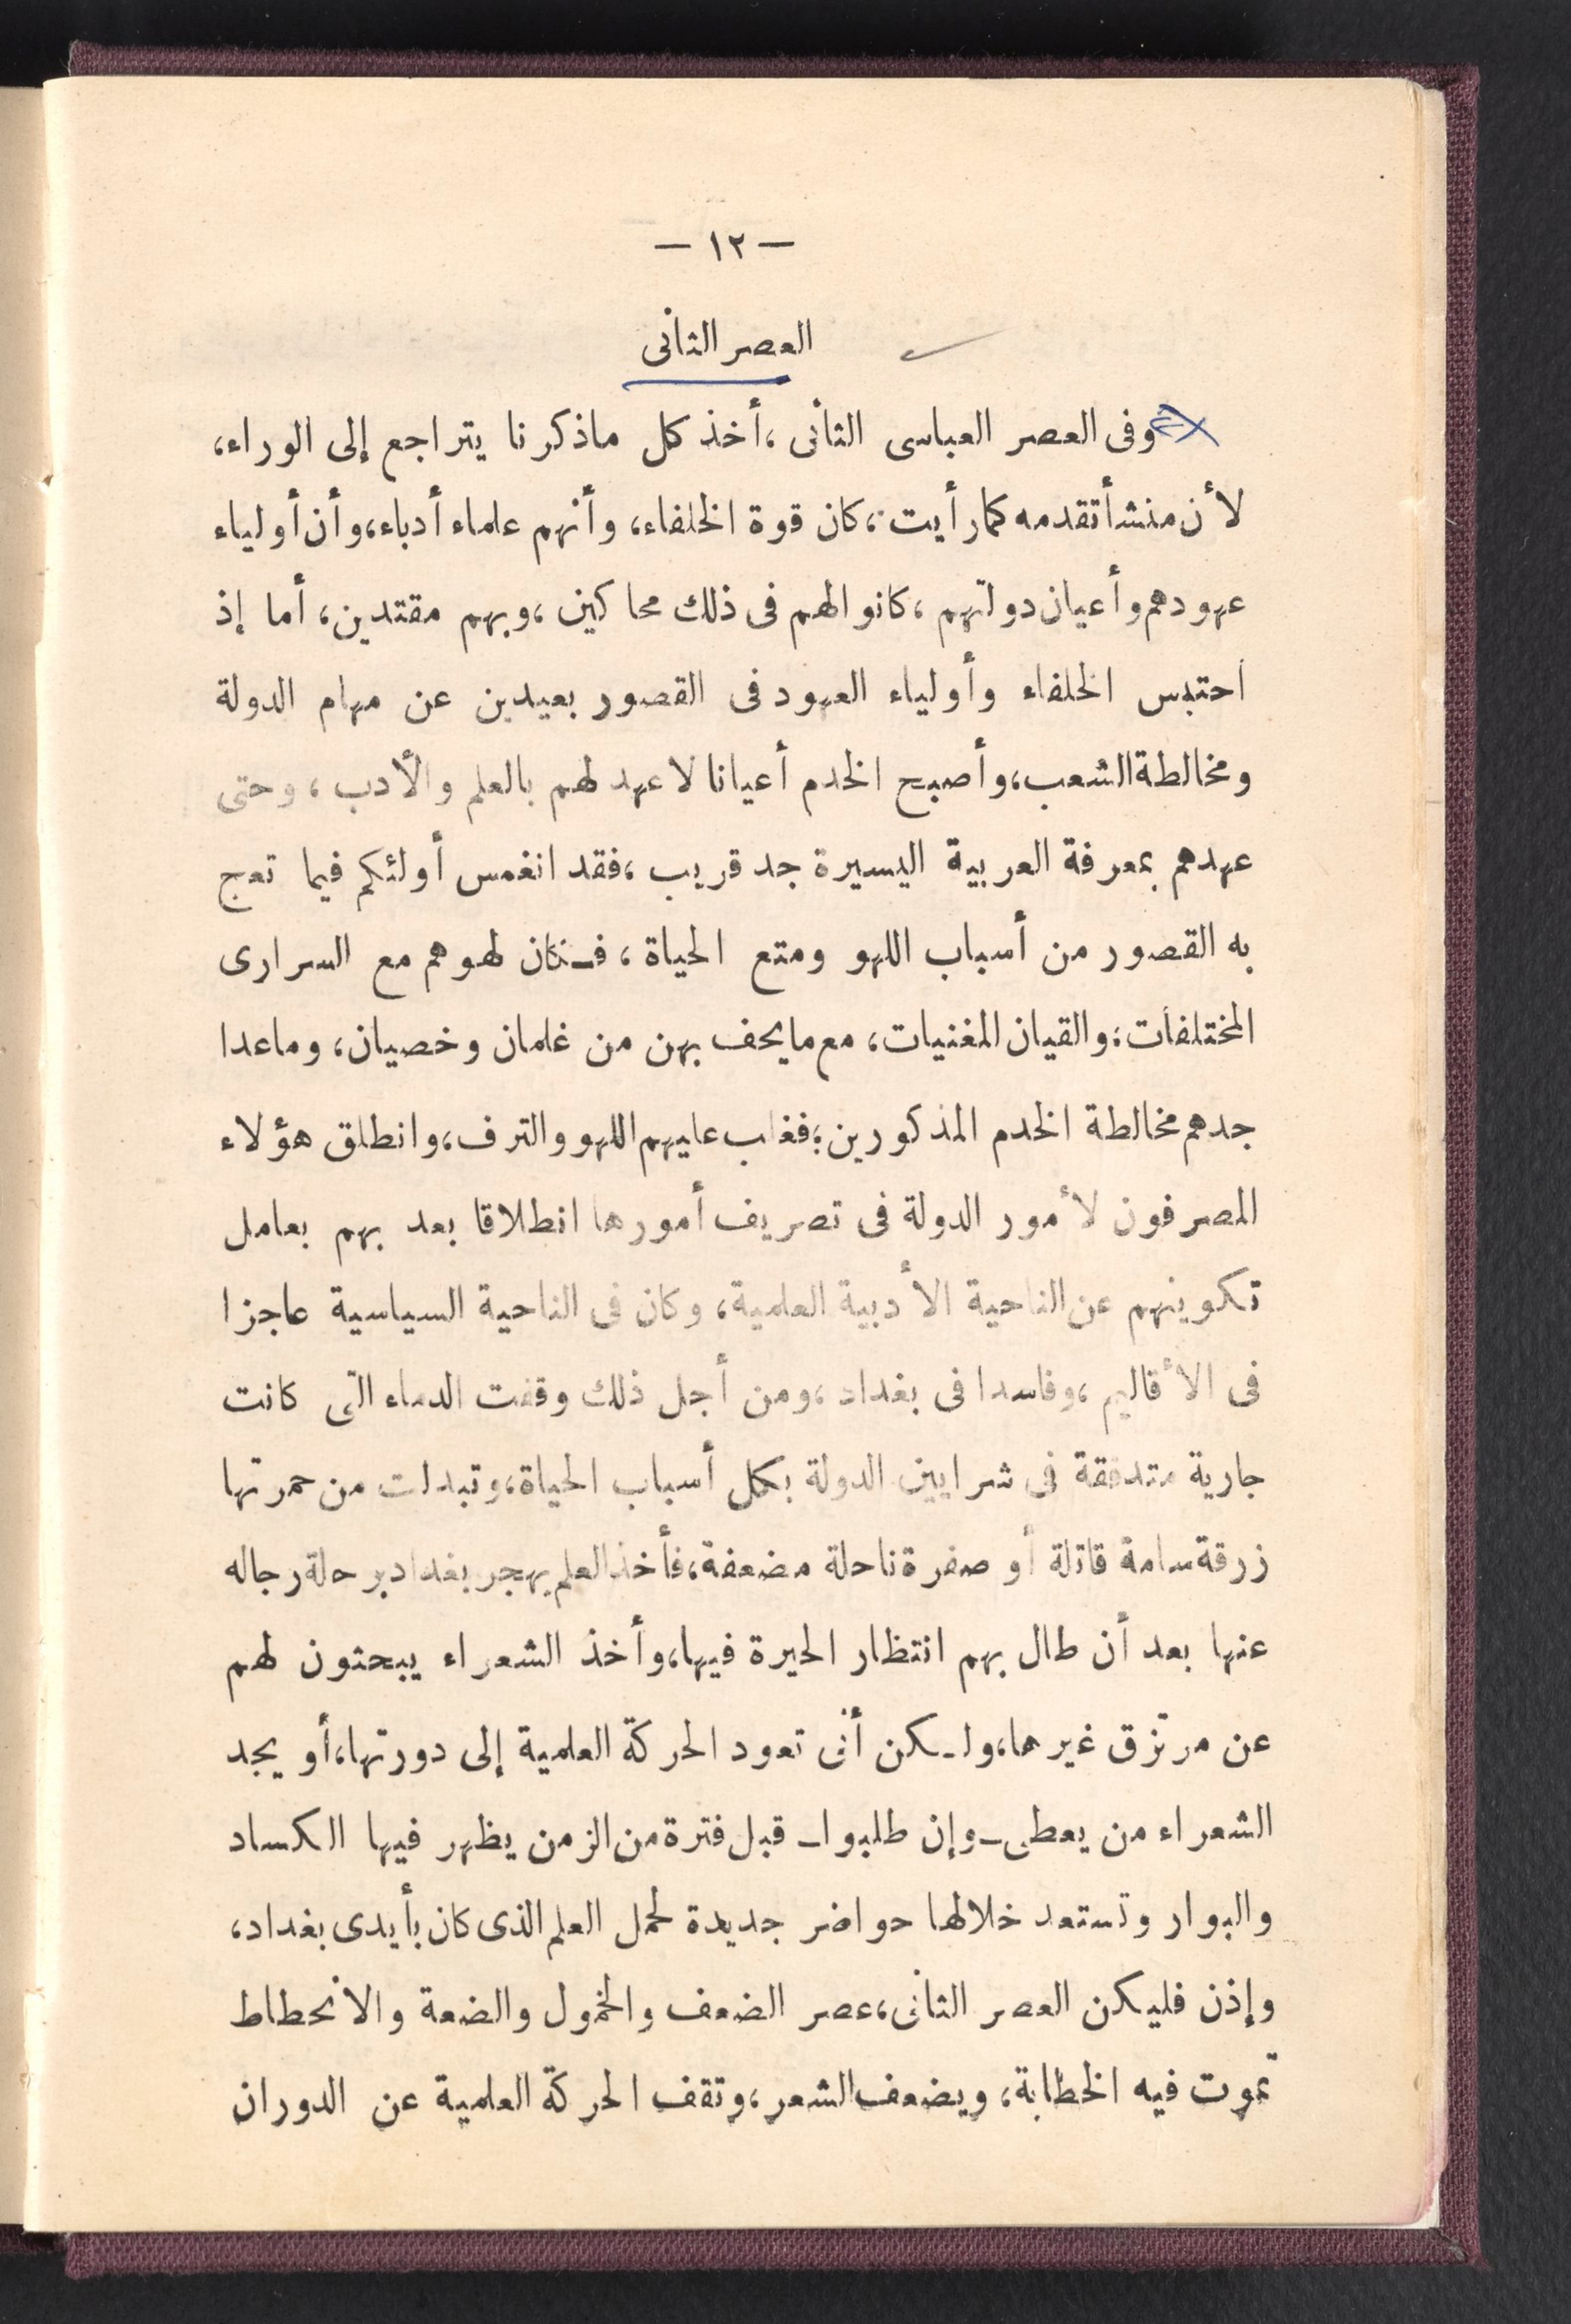 — ١٢ —
العصر الثانى
وفى العصر العباسى الثانى ، أخذ كل ماذكرنا يتراجع إلى الوراء،
لأن منشأ تقدمه كمارأيت ، كان قوة الخلفاء، وأنهم علماء أدباء، وأن أولياء
عهودهم وأعيان دولتهم ، كانوا لهم فى ذلك محاكين ، وبهم مقتدين، أما إذ
احتبس الخلفاء وأولياء العهود فى القصور بعيدين عن مهام الدولة
ومخالطة الشعب، وأصبح الخدم أعيانا لا عهد لهم بالعلم والأدب ، وحتى
عهدهم بمعرفة العربية اليسيرة جد قريب ، فقد انغمس أولئكم فيما تعج
به القصور من أسباب اللهو ومتع الحياة ، فكان لهوهم مع السرارى
المختلفات، والقيان المغنيات، مع مايحف بهن من غلمان وخصيان، وماعدا
جدهم مخالطة الخدم المذكورين؛ فغلب عليهم اللهو والترف، وانطلق هؤلاء
المصرفون لأمور الدولة فى تصريف أمورها انطلاقا بعد بهم بعامل
تكوينهم عن الناحية الأدبية العلمية، وكان فى الناحية السياسية عاجزا
فى الأقاليم ، وفاسدا فى بغداد ، ومن أجل ذلك وقفت الدماء التى كانت
جارية متدفقة فى شرايين الدولة بكل أسباب الحياة، وتبدلت من حمرتها
زرقة سامة قاتلة أو صفرة ناحلة مضعفة، فأخذ العلم يهجر بغداد برحلة رجاله
عنها بعد أن طال بهم انتظار الحيرة فيها، وأخذ الشعراء يبحثون لهم
عن مرتزق غيرها، ولكن أنى تعود الحركة العلمية إلى دورتها، أو يجد
الشعراء من يعطى ـ وإن طلبوا ـ قبل فترة من الزمن يظهر فيها الكساد
والبوار وتستعد خلالها حواضر جديدة لحمل العلم الذى كان بأيدى بغداد،
وإذن فليكن العصر الثانى، عصر الضعف والخمول والضعة والانحطاط
تموت فيه الخطابة، ويضعف الشعر، وتقف الحركة العلمية عن الدوران